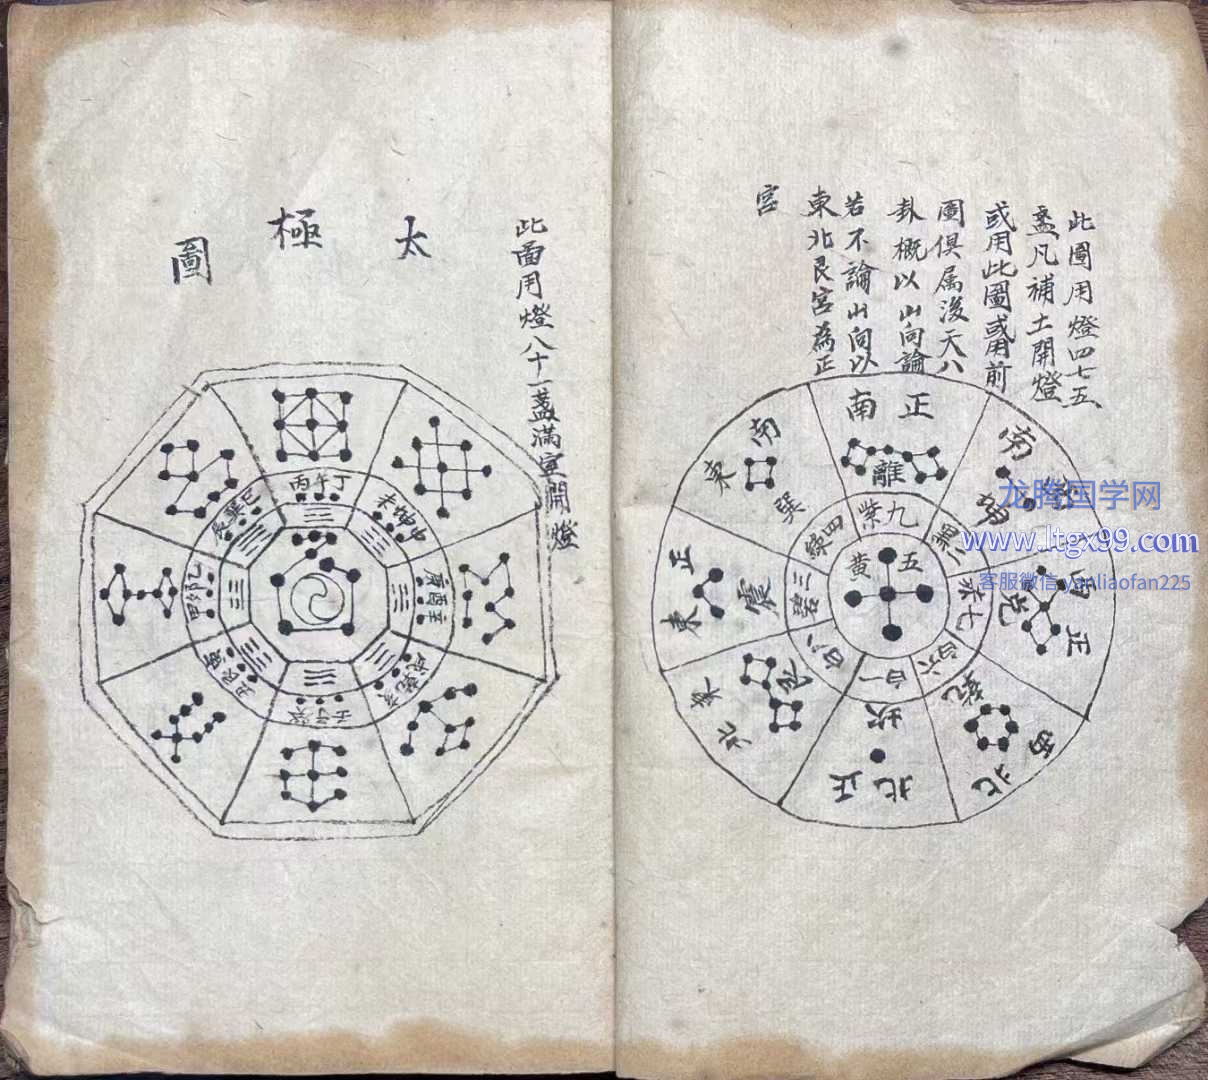 此圖用燈四七五
盞凡補土開燈
或用此圖或用前
圖俱属後天八
卦概以山向論
若不論山向以
東北艮宮為正
宮
正南
離
九紫
南
坤
二黑
正
兌
七赤
西北
乾
六白
正北
坎
一白
東北
艮
八白
正東
震
三碧
東南
巽
四綠
五黃
龙腾国学网
www.ltgx99.com
客服微信 yanliaofan225
此圖用燈八十一盞滿室開燈
太極圖
丙午丁
未坤申
庚酉辛
戌乾亥
壬子癸
丑艮寅
甲卯乙
辰巽巳